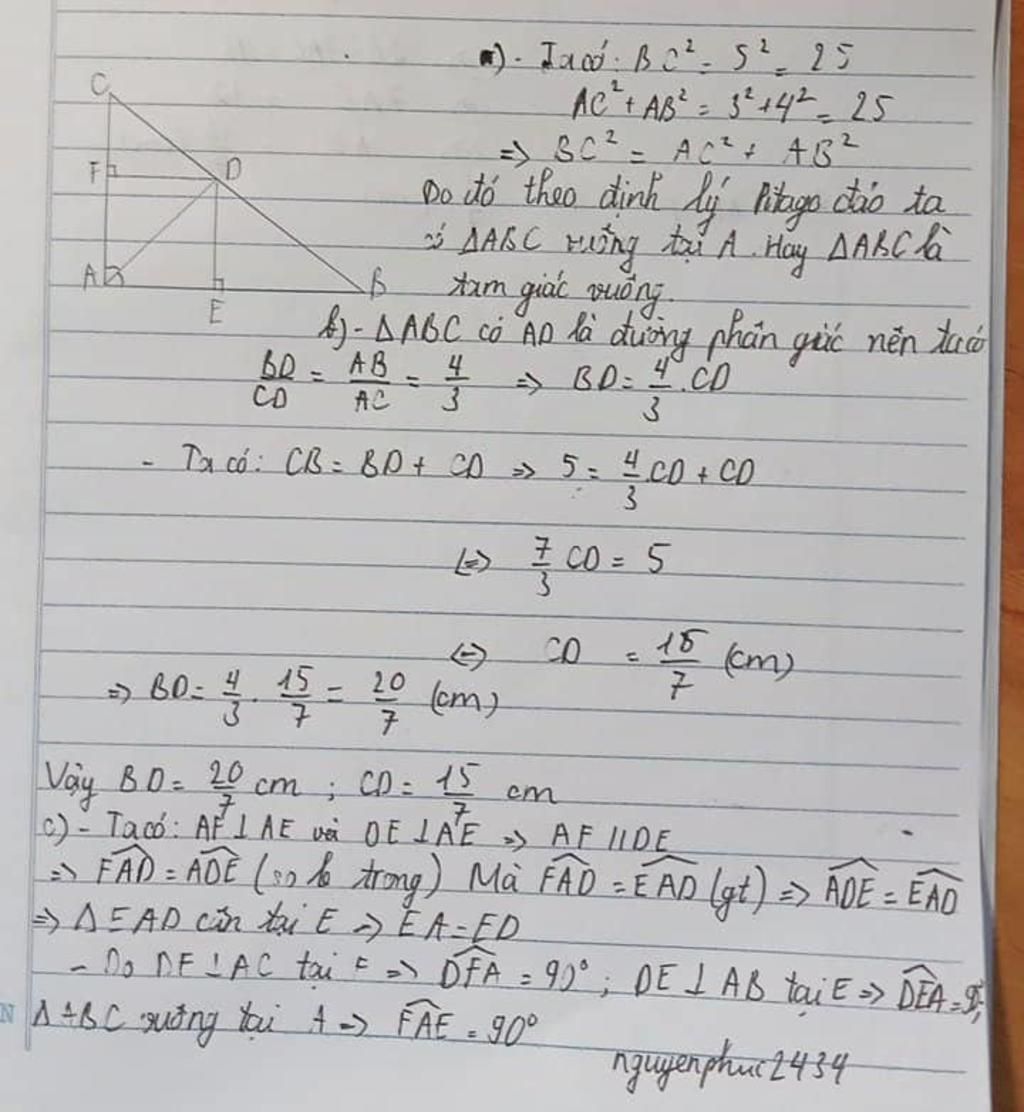 a) - Ta có: BC² = 5² = 25
AC² + AB² = 3² + 4² = 25
=> BC² = AC² + AB²
Do đó theo định lý Pitago đảo ta
có ΔABC vuông tại A. Hay ΔABC là
tam giác vuông.
C
F D
A E B
b) - ΔABC có AD là đường phân giác nên ta có
BD/CD = AB/AC = 4/3 => BD = 4/3 . CD
- Ta có: CB = BD + CD => 5 = 4/3 CD + CD
<=> 7/3 CD = 5
<=> CD = 15/7 (cm)
=> BD = 4/3 . 15/7 = 20/7 (cm)
Vậy BD = 20/7 cm ; CD = 15/7 cm
c) - Ta có: AF ⊥ AE và DE ⊥ AE => AF // DE
=> FAD = ADE (so le trong) Mà FAD = EAD (gt) => ADE = EAD
=> ΔEAD cân tại E => EA = ED
- Do DF ⊥ AC tại F => DFA = 90° ; DE ⊥ AB tại E => DEA = 90°;
N ΔABC vuông tại A => FAE = 90°
nguyenphuc2434